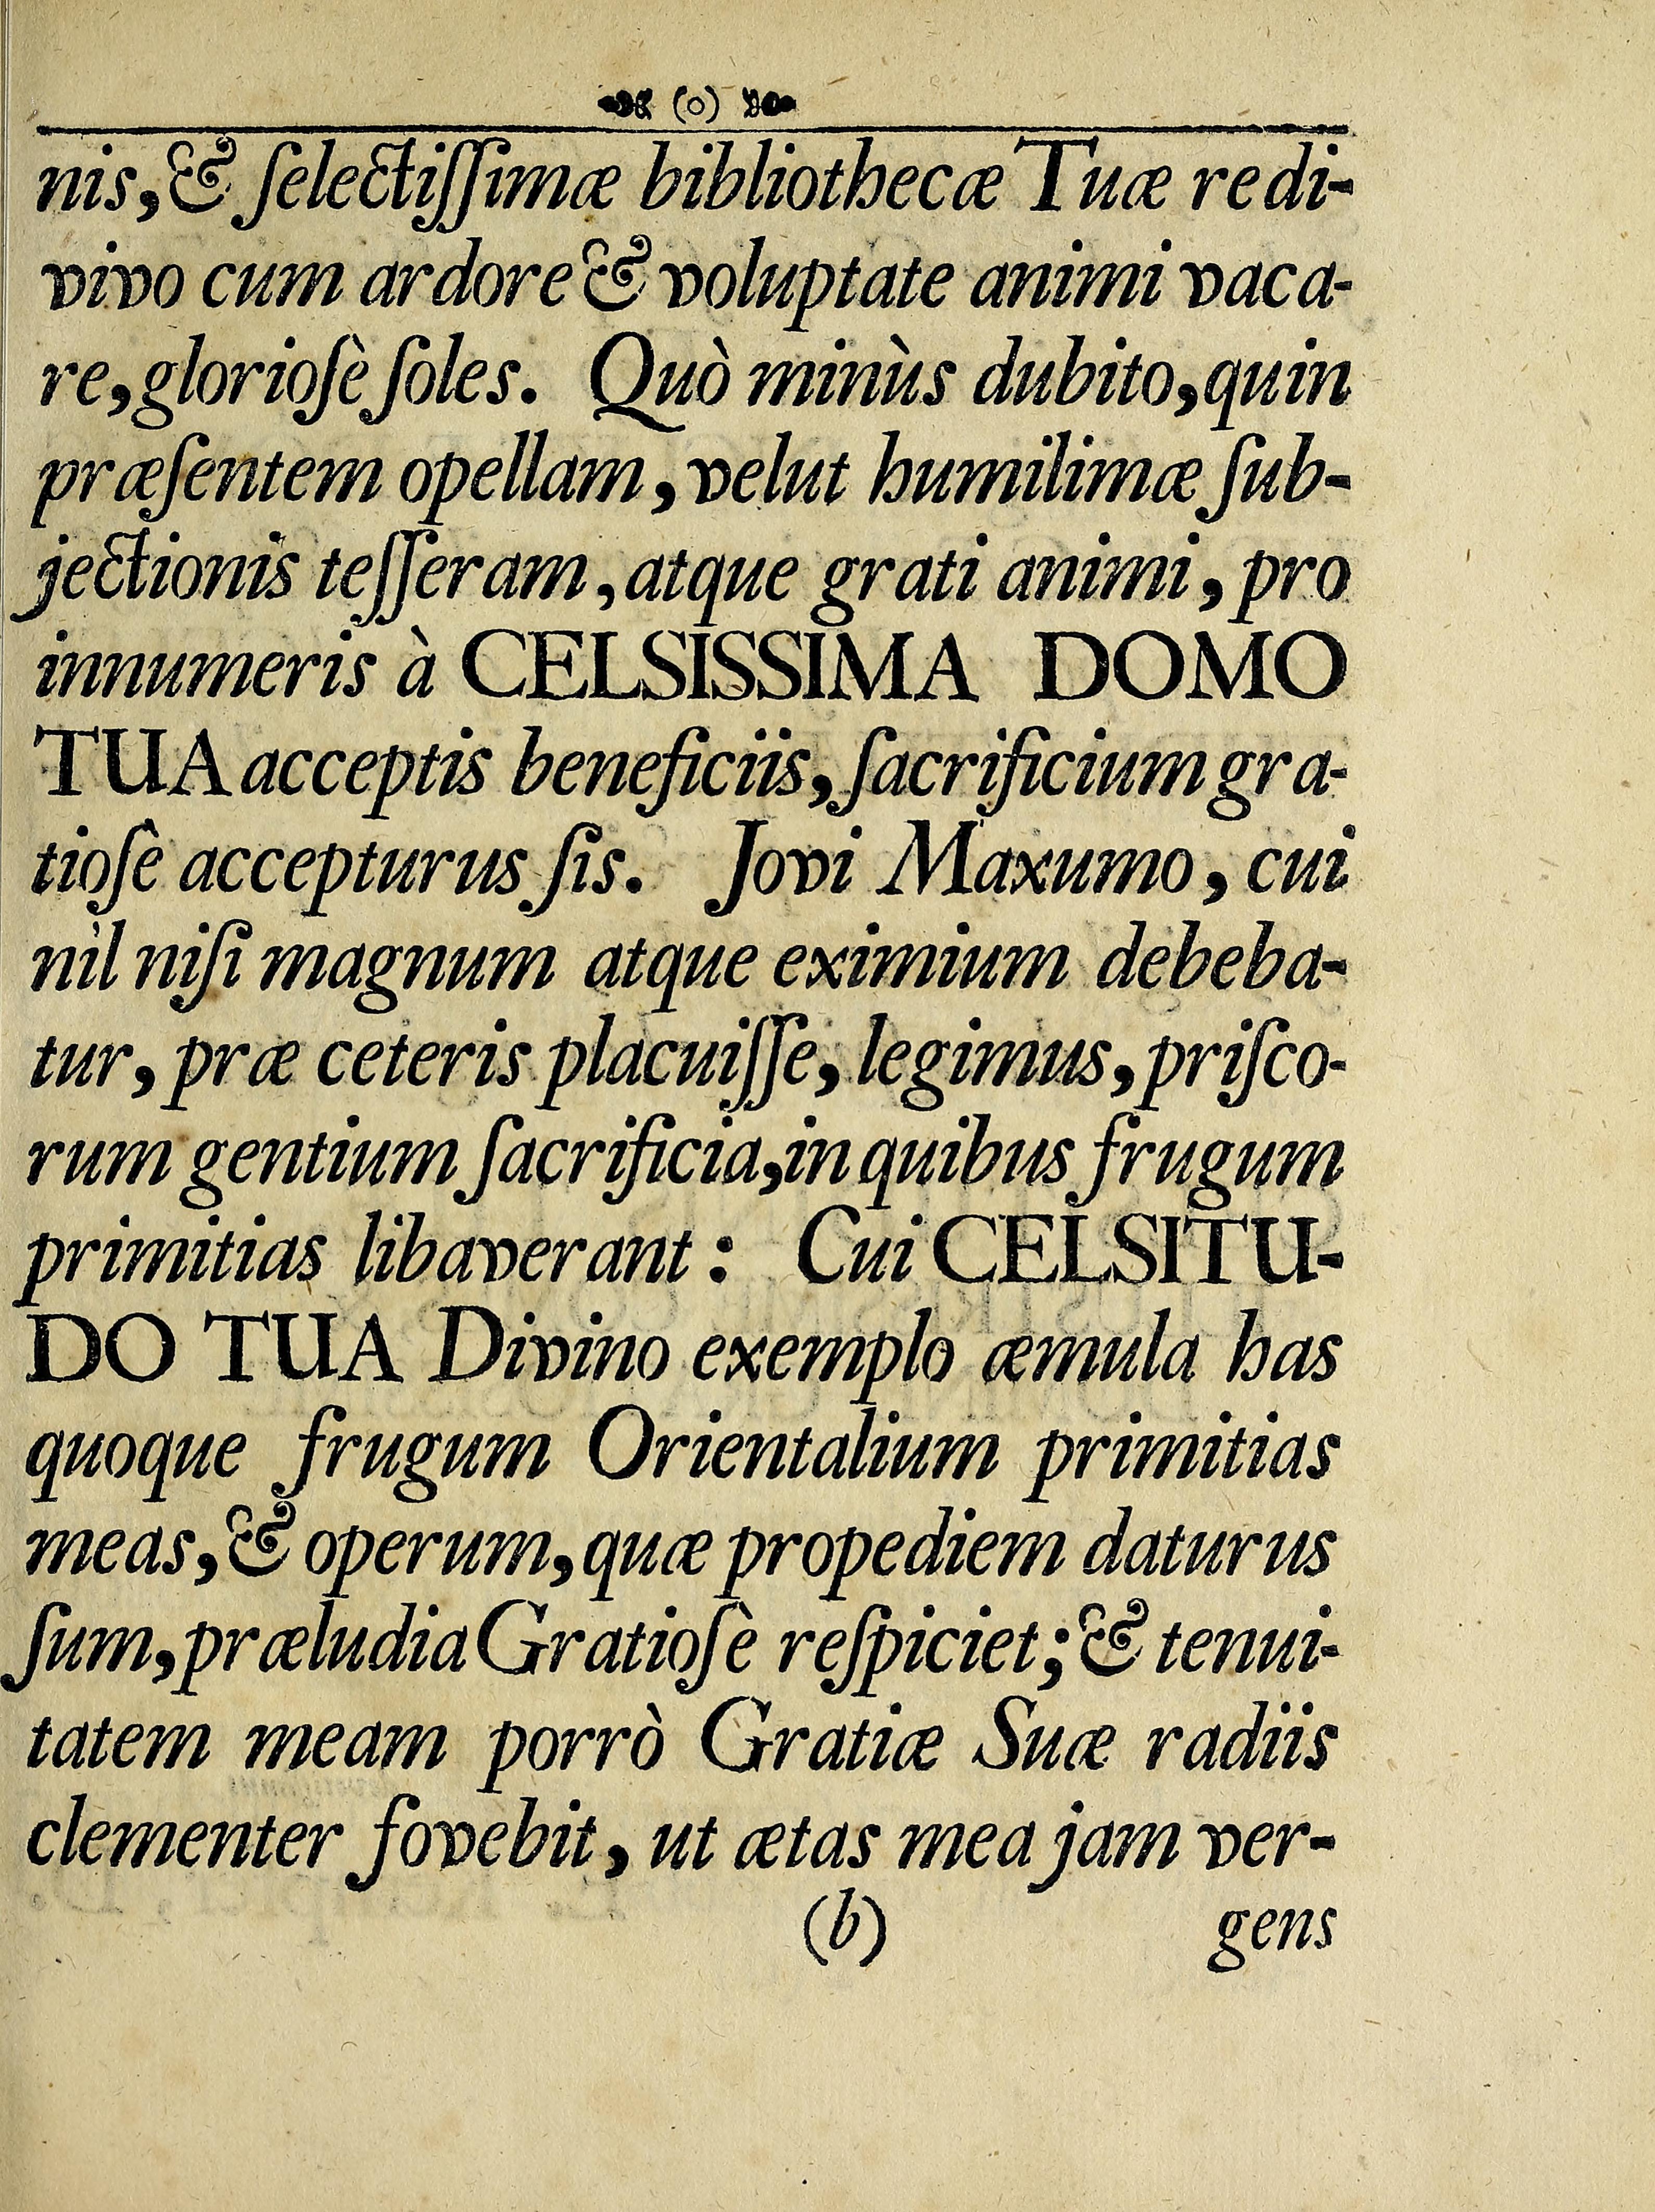 (o)
nis, & ſelectiſſimæ bibliothecæ Tuæ redi-
vivo cum ardore & voluptate animi vaca-
re, glorioſè ſoles. Quò minùs dubito, quin
præſentem opellam, velut humilimæ ſub-
jectionis teſſeram, atque grati animi, pro
innumeris à CELSISSIMA DOMO
TUA acceptis beneficiis, ſacrificium gra-
tioſè accepturus ſis. Jovi Maxumo, cui
nil niſi magnum atque eximium debeba-
tur, præ ceteris placuiſſe, legimus, priſco-
rum gentium ſacrificia, in quibus frugum
primitias libaverant: Cui CELSITU-
DO TUA Divino exemplo æmula has
quoque frugum Orientalium primitias
meas, & operum, quæ propediem daturus
ſum, præludia Gratioſè reſpiciet; & tenui-
tatem meam porrò Gratiæ Suæ radiis
clementer fovebit, ut ætas mea jam ver-
(b) gens